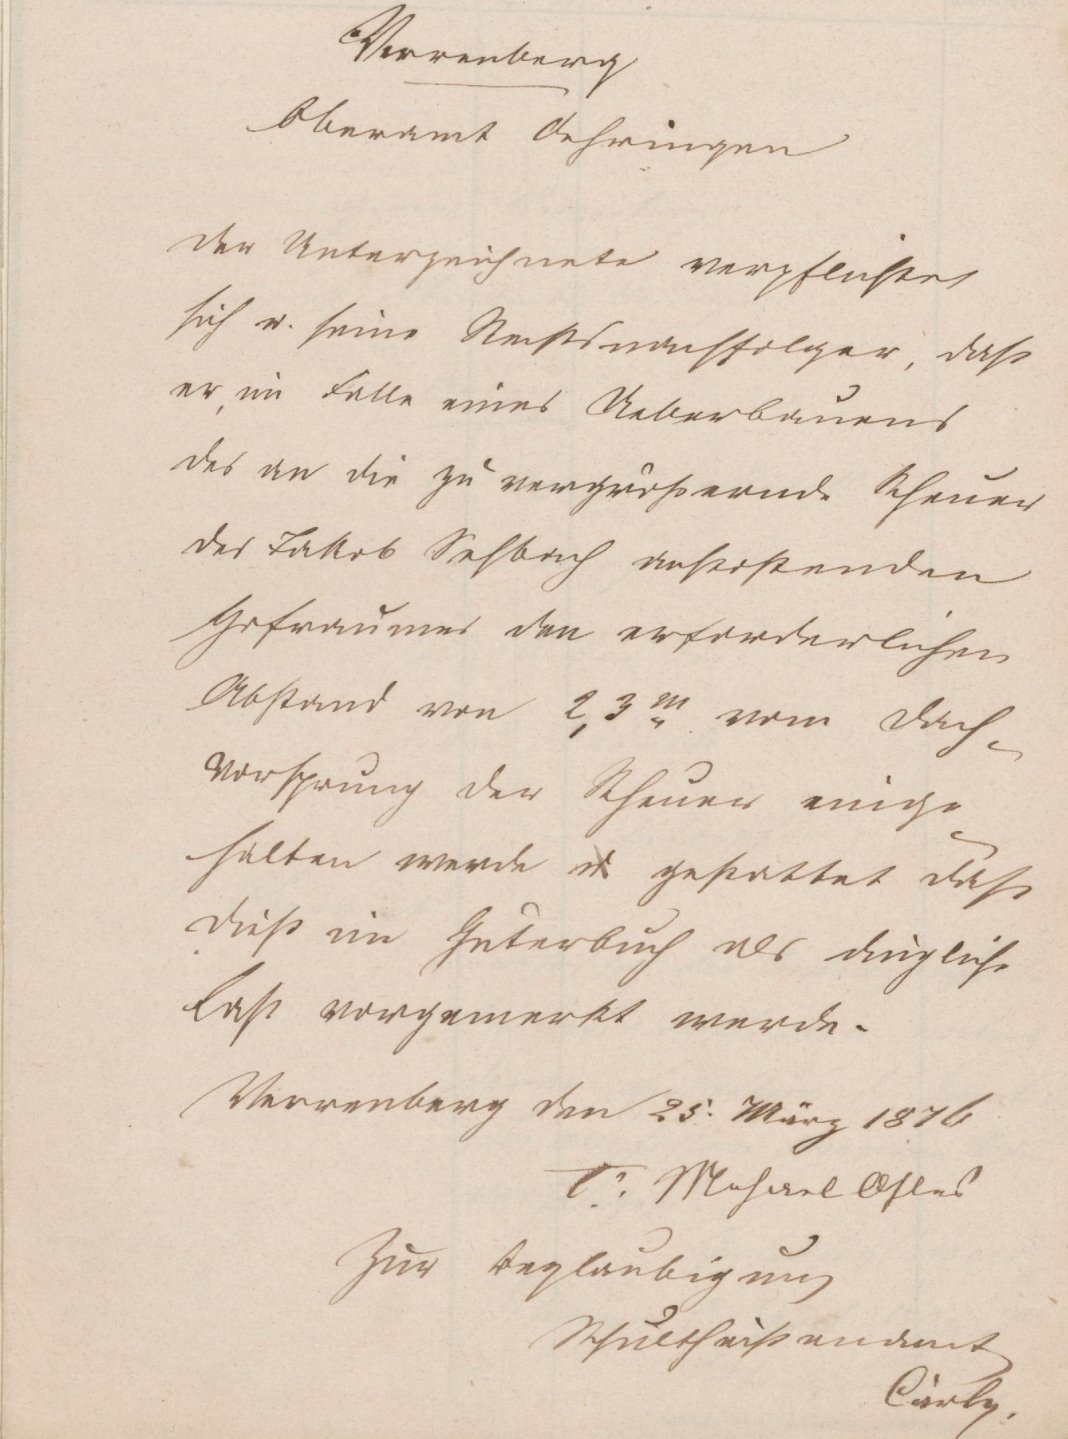 Verrenberg
Oberamt Oehringen
Der Unterzeichnete verpflichtet
sich u. seine Rechtsnachfolger, daß
er, im Falle eines Ueberbauens
des an die zu vergrößernde Scheuer
des Jakob anstoßenden
Hofraumes den erforderlichen
Abstand von 2,3 m vom Dach-
vorsprung der Scheuer einge-
halten werde u gestattet daß
dieß im Güterbuch als dingliche
Last vorgemerkt werde.
Verrenberg den 25. März 1876
T. Michael
Zur Beglaubigung
Schultheißenamt